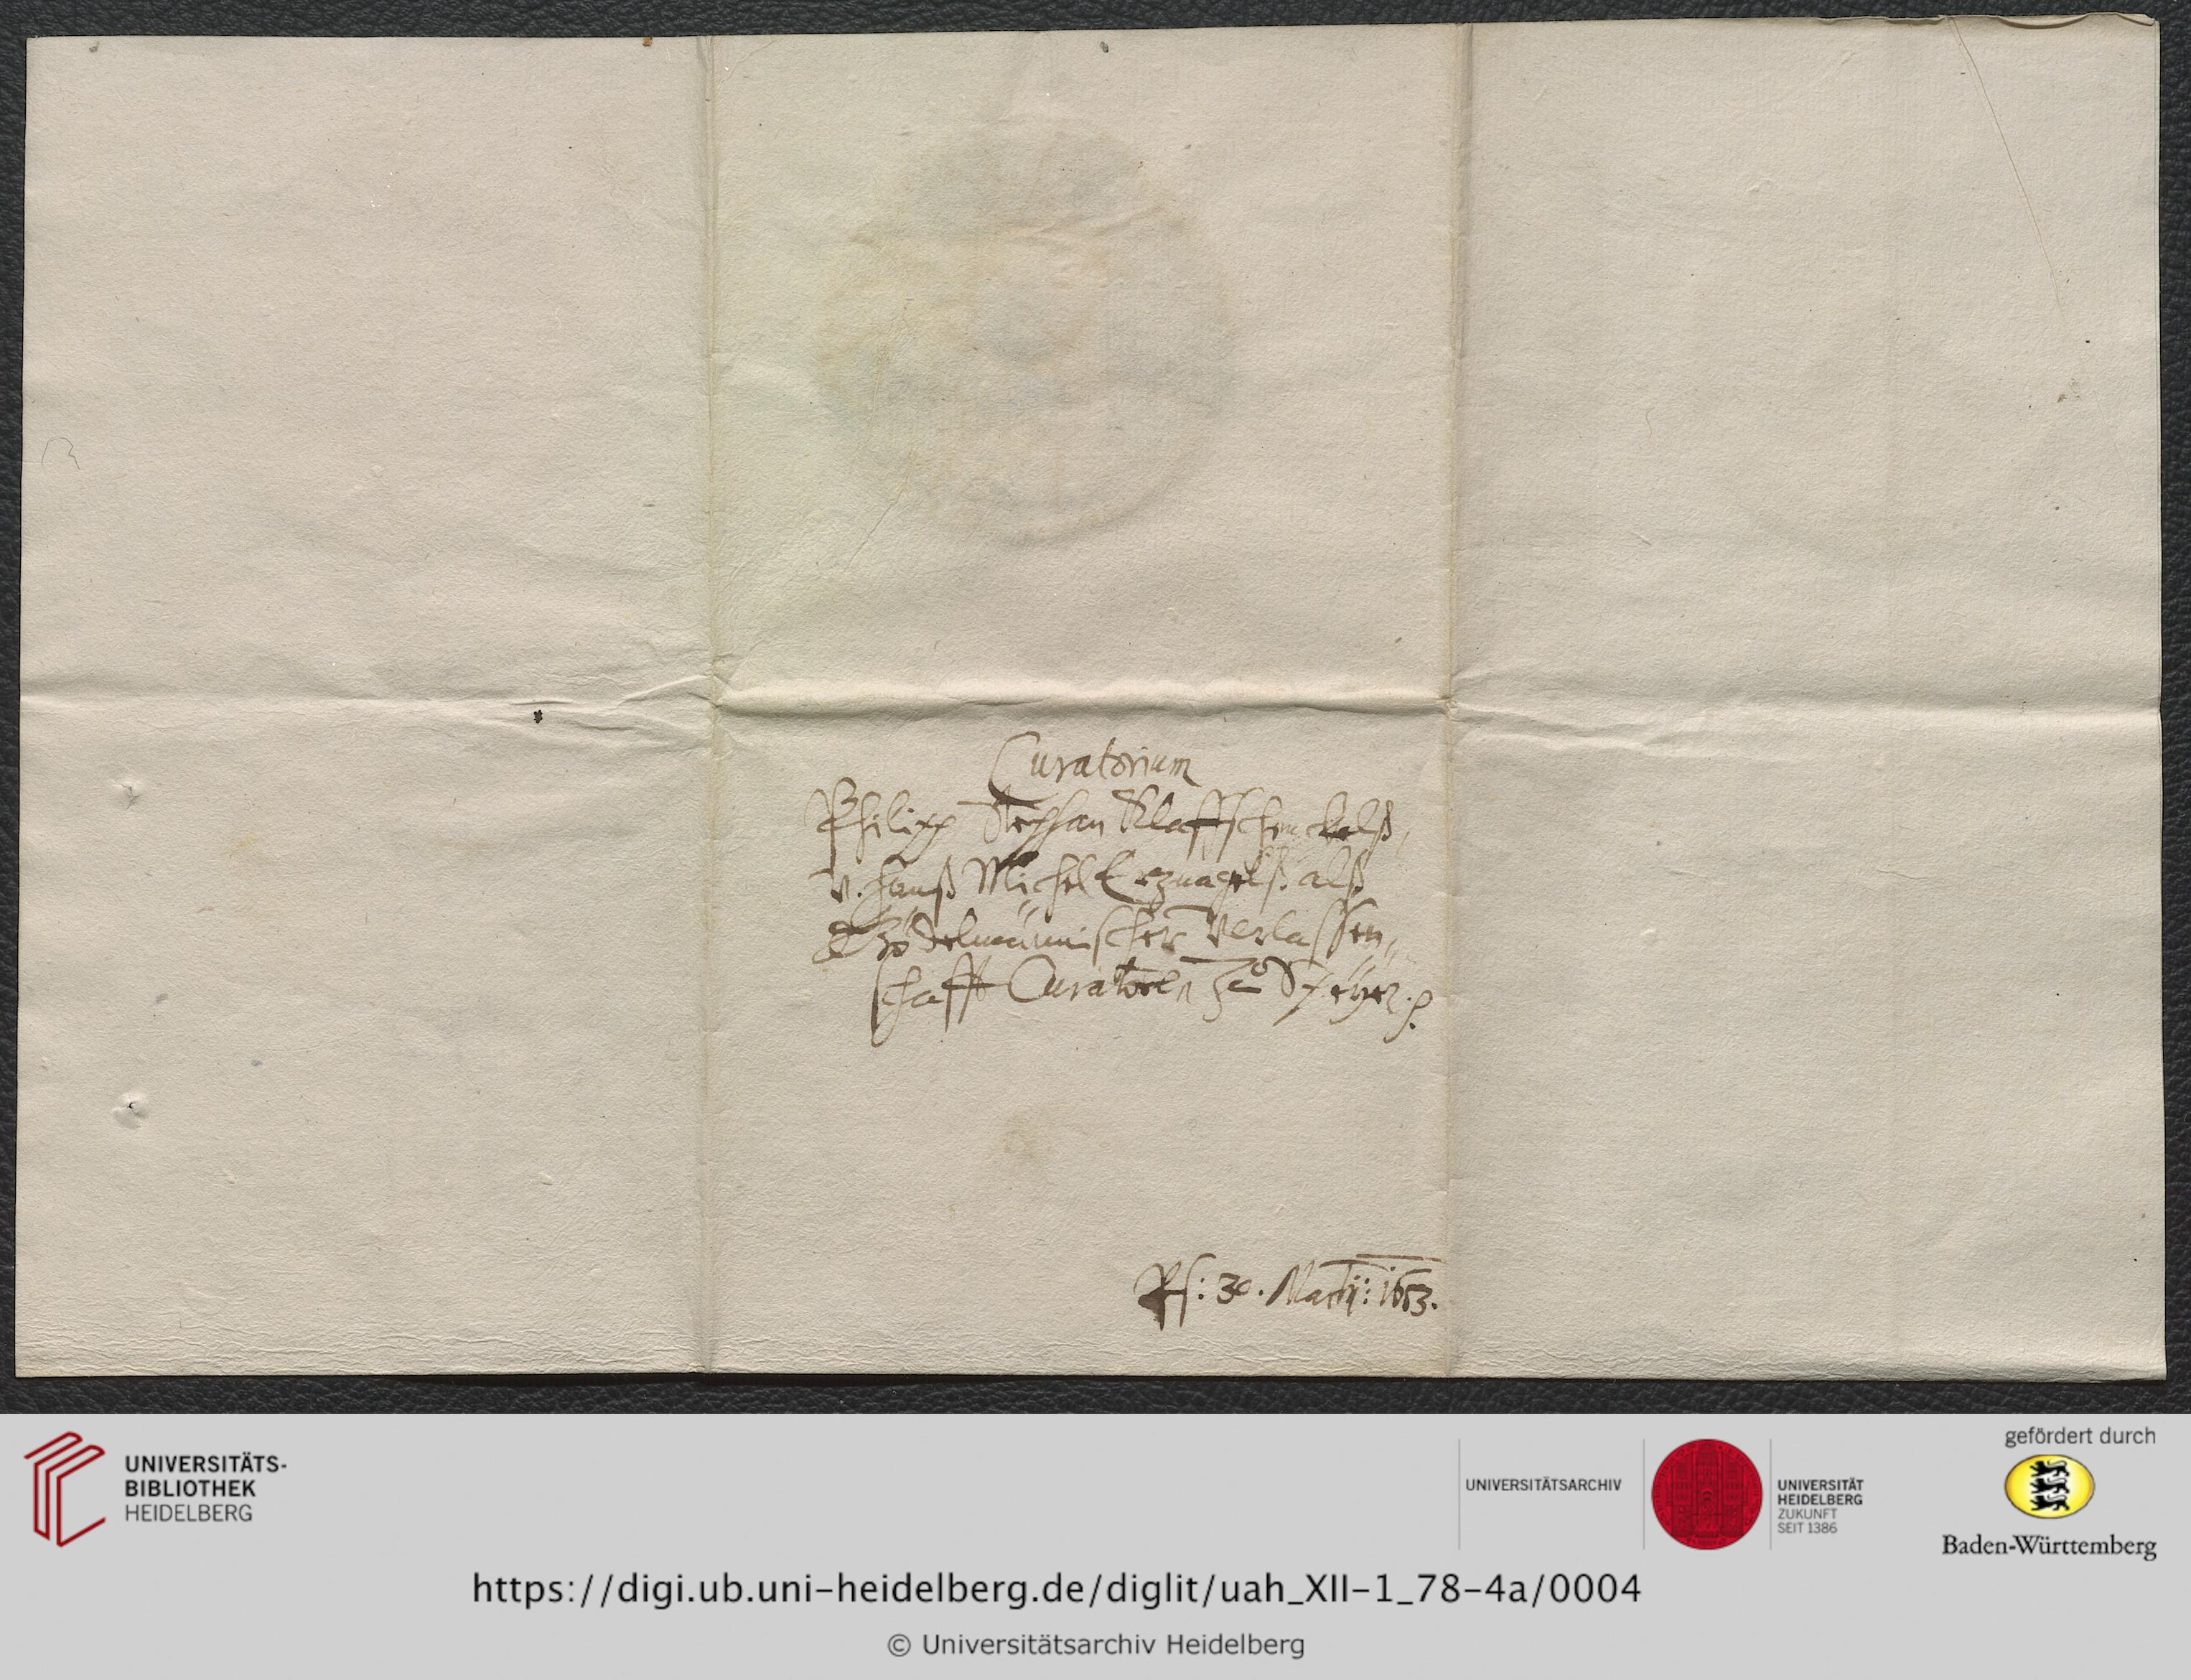 Curatorium
Philipp Stephan Klaffschenckelß,
v. Hanß Michel Erznägelß alß
Verlassen,,
schafft Curatorn Zu Speyer. p.
Ps: 30. Martij: 1653.
UNIVERSITÄTS-
BIBLIOTHEK
HEIDELBERG
UNIVERSITÄTSARCHIV
UNIVERSITÄT
HEIDELBERG
ZUKUNFT
SEIT 1386
gefördert durch
Baden-Württemberg
https://digi.ub.uni-heidelberg.de/diglit/uah_XII-1_78-4a/0004
© Universitätsarchiv Heidelberg